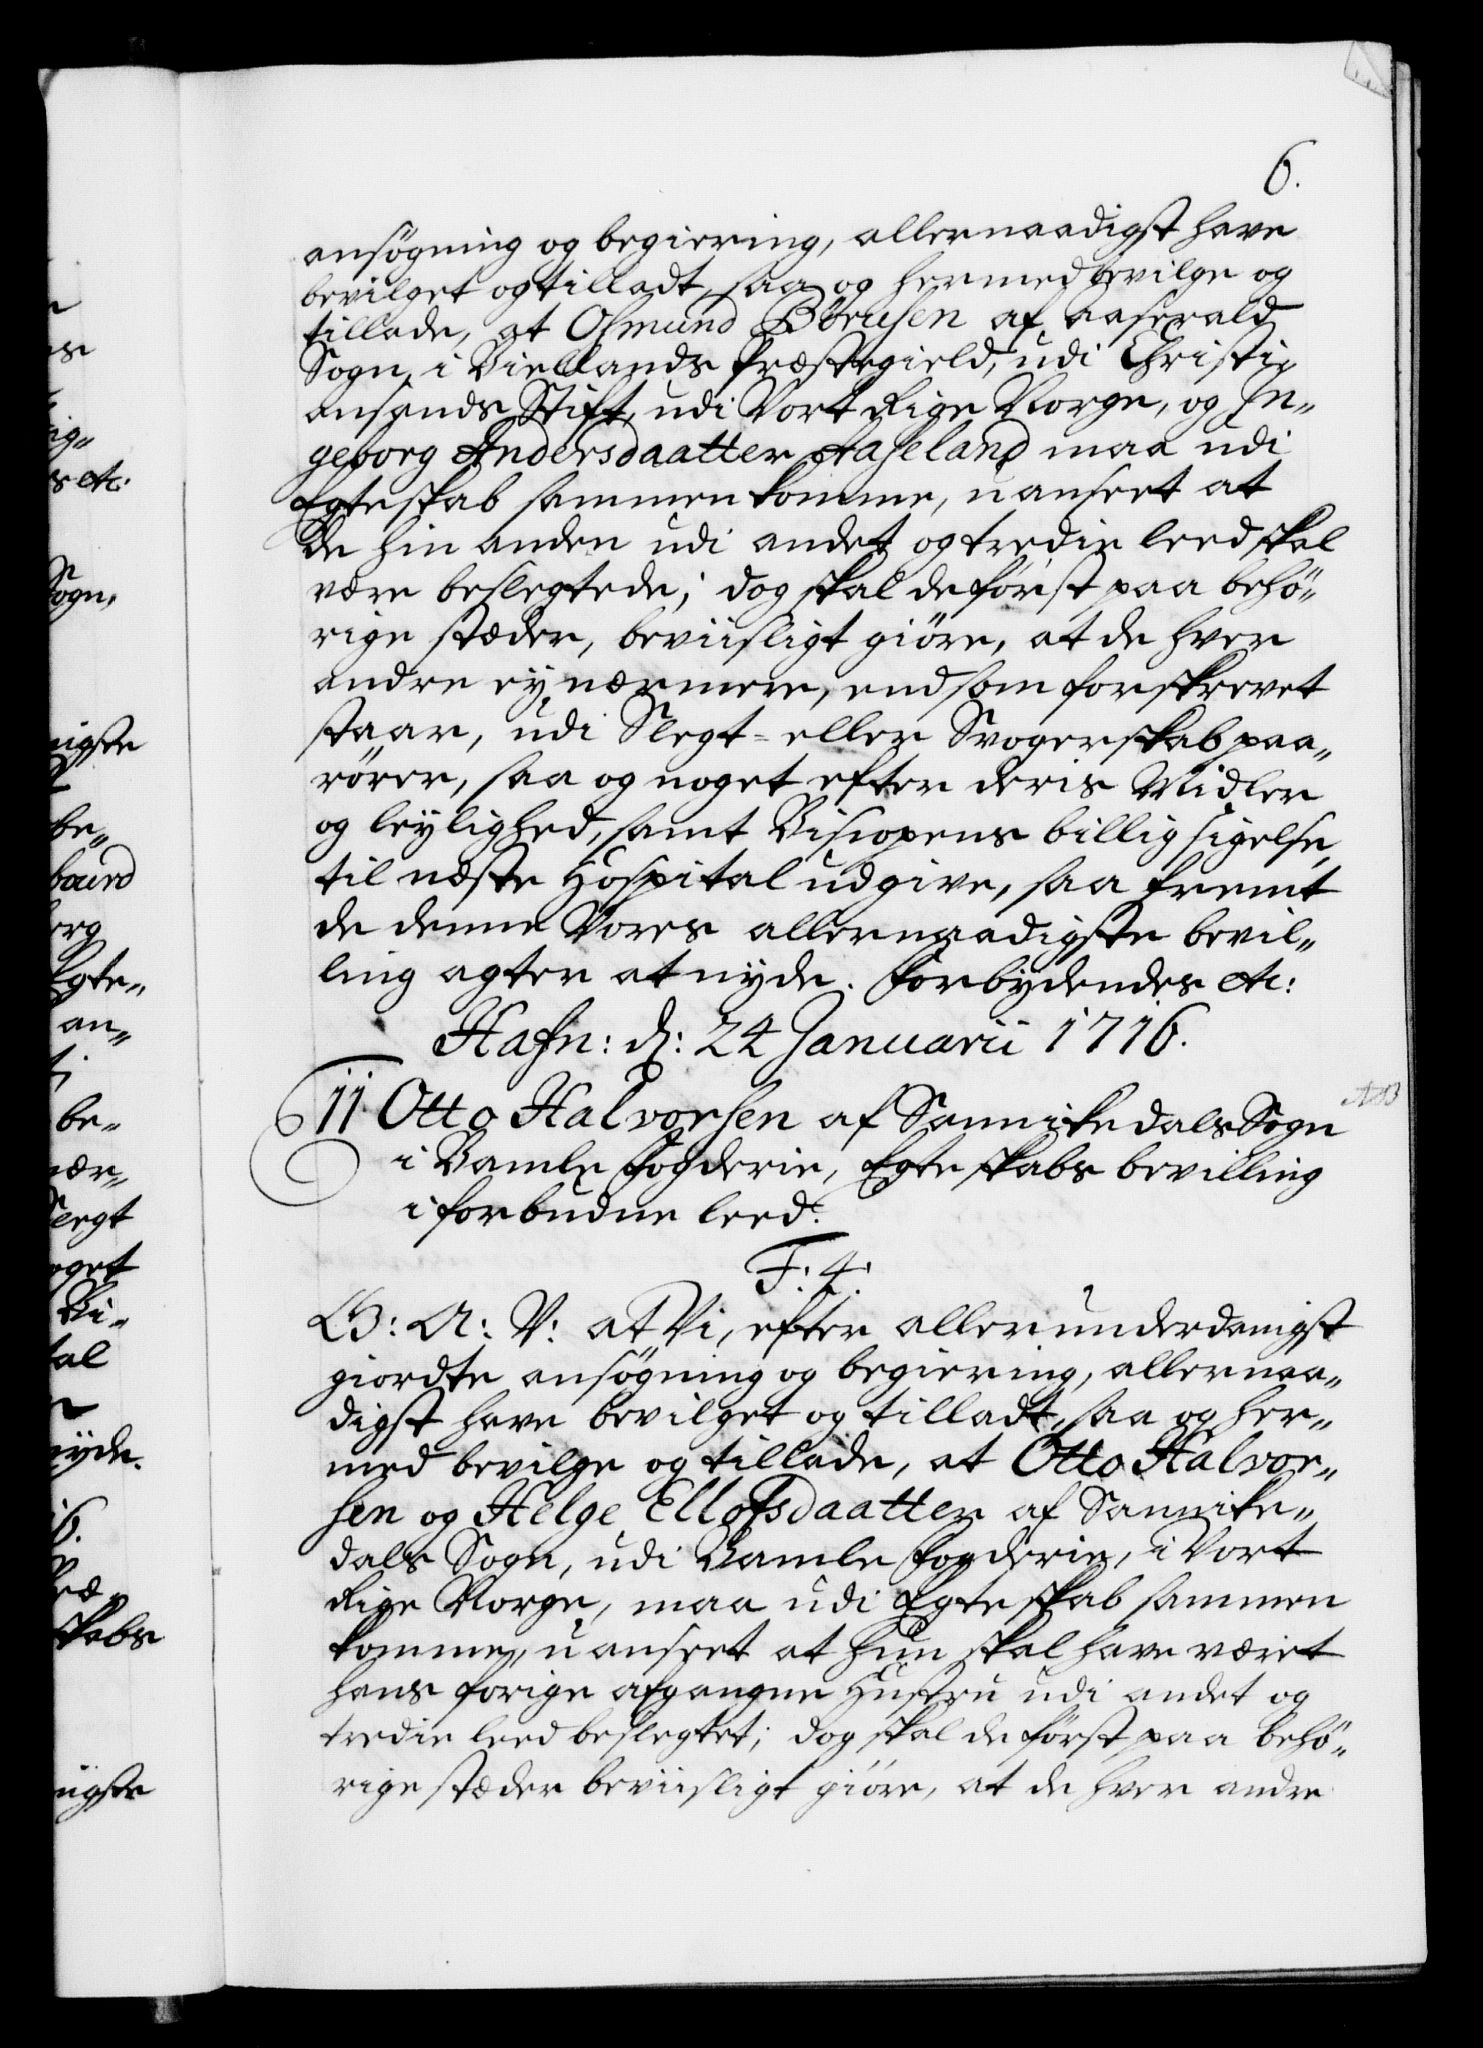 6.
ansögning og begiering, allernaadigst have
bevilget og tilladt, saa og hermed bevilge og
tillade, at Osmund Börusen af Aaserald
Sogn, i Biellands Præstegield, udi Christi„
ansands Stift, udi Vort Rige Norge, og In„
geborg Andersdaatter Aaseland maa udi
Egteskab sammen komme, uanseet at
de hin anden udi andet og tredie leed skal
være beslegtede; dog skal de först paa behö„
rige stæder, beviisligt giöre, at de hver
andre ey nærmere, end som forskrevet
staar, udi Slegt- eller Svogerskab paa„
rörer, saa og noget efter deris Midler
og leylighed, samt Biscopens billig sigelse,
til næste Hospital udgive, saa fremt
de denne Vores allernaadigste bevil„
ling agter at nyde. Forbydendes etc:
Hafn: d: 24 Januarii 1716.
11 Otto Halvorsen af Sannikedals Sogn
i Bamle Fogderie, Egteskabs bevilling
i forbudne leed.
F: 4.
G: A: V: at Vi, efter allerunderdanigst
giordte ansögning og begiering, allernaa„
digst have bevilget og tilladt, saa og her„
med bevilge og tillade, at Otto Halvor„
sen og Helge Ellofsdaatter af Sannike„
dals Sogn, udi Bamle Fogderie, i Vort
Rige Norge, maa udi Egteskab sammen
komme, uanseet at hun skal have været
hans forige afgangne Hustru udi andet og
tredie leed beslegtet; dog skal de först paa behö„
rige stæder beviisligt giöre, at de hver andre